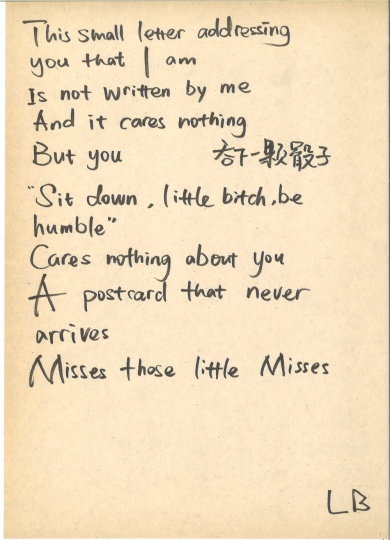 This small letter addressing
you that I am
Is not written by me
And it cares nothing
But you 吞下一颗骰子
"Sit down, little bitch, be
humble"
Cares nothing about you
A postcard that never
arrives
Misses those little Misses
LB